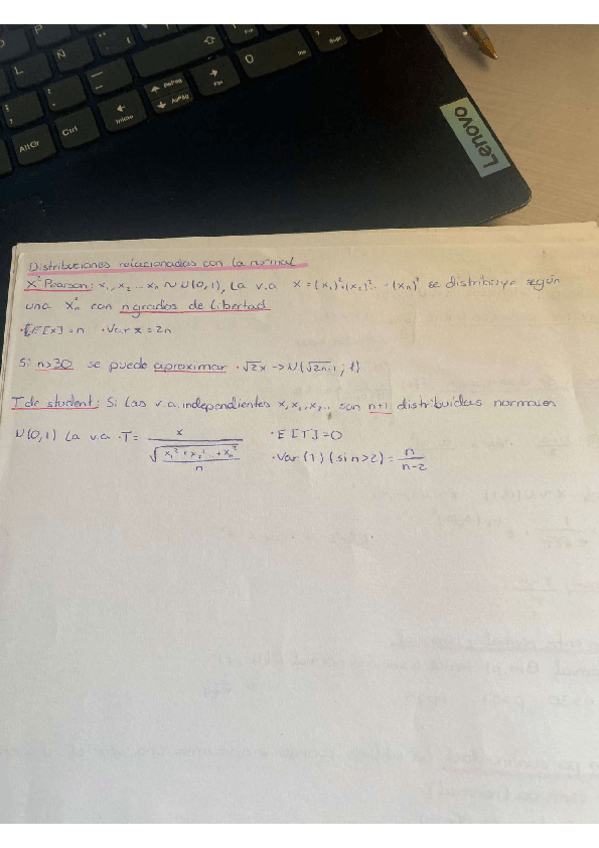 P
L
Ñ
Alt Gr
Ctrl
Inicio
RePág
AvPág
Fin
0
Ins
Supr
Lenovo
Distribuciones relacionadas con la normal
X² Pearson: x₁, x₂ ... xₙ ~ N(0,1), La v.a X = (x₁)²+(x₂)²... + (xₙ)² se distribuye según
una X²ₙ con n grados de libertad
·E[x]=n ·Var x = 2n
Si n>30 se puede aproximar · √2x -> N(√2n-1, 1)
T de student: Si Las v.a. independientes x, x₁, x₂... son n+1 distribuidas normales
N(0,1) La v.a · T = x / √((x₁² + x₂² ... + xₙ²) / n) · E[T]=0
· Var(T) (si n>2) = n / n-2